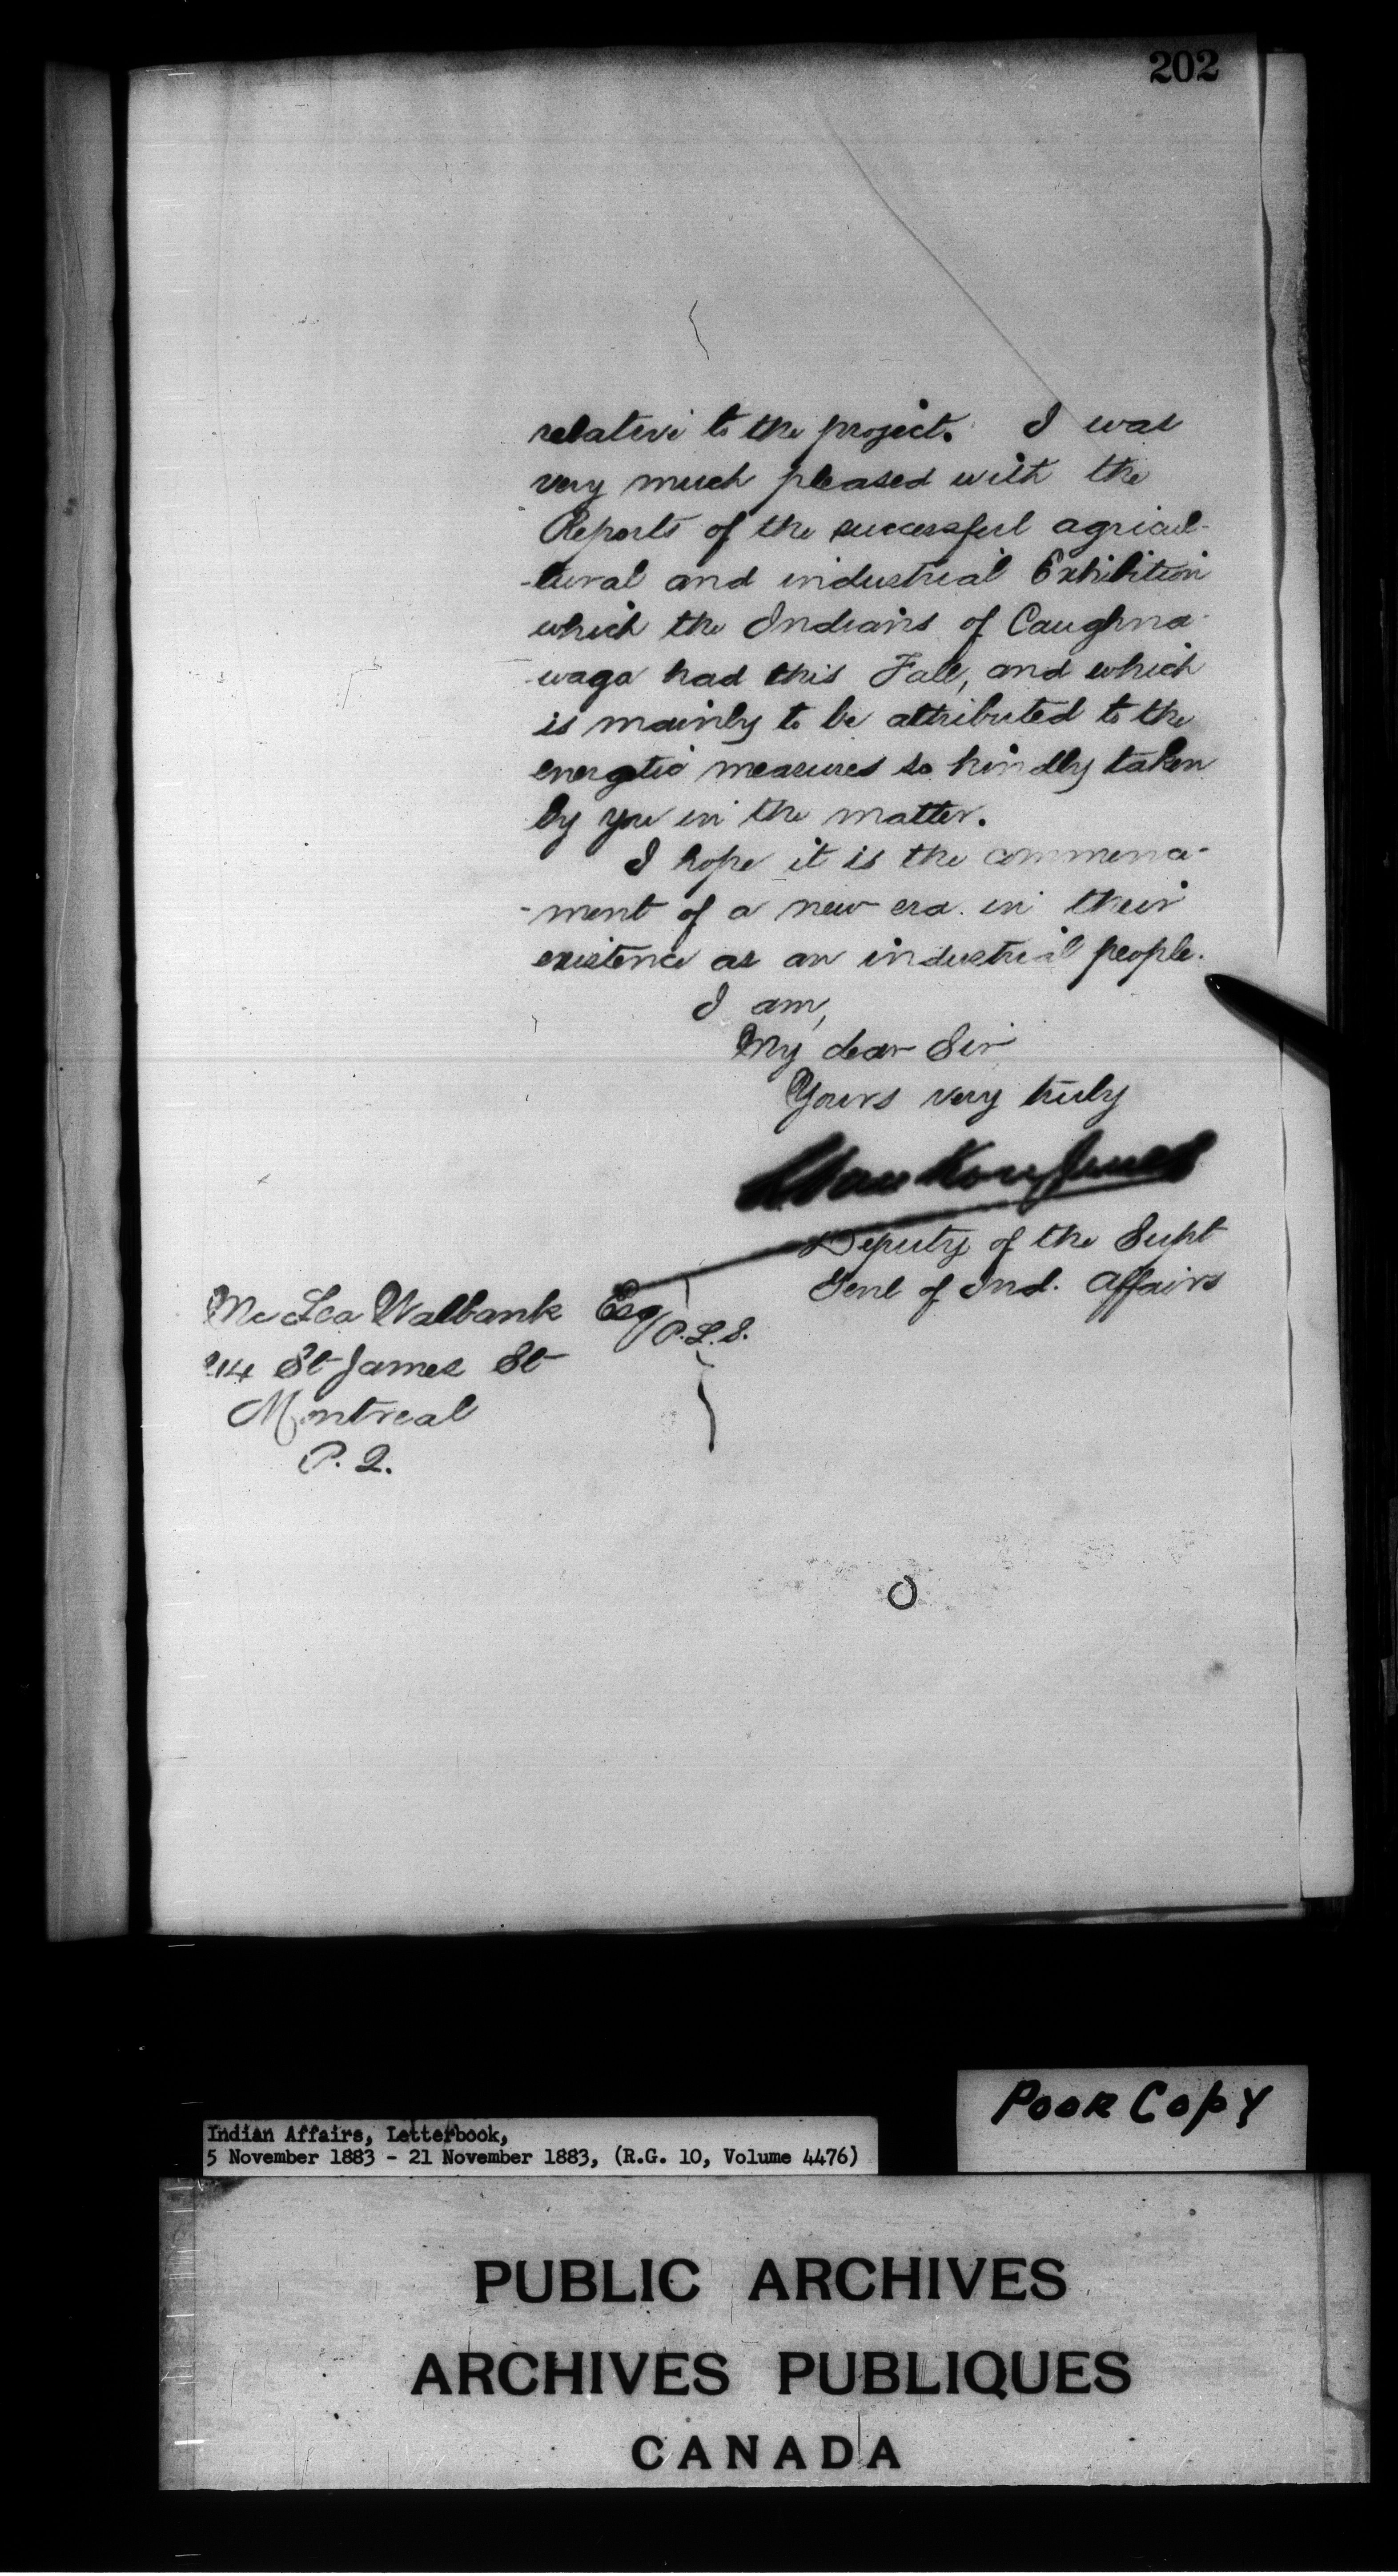 202
relative to the project. I was
very much pleased with the
Reports of the successful agricul-
-tural and industrial Exhibition
which the Indians of Caughna-
-waga had this Fall, and which
is mainly to be attributed to the
energetic measures so kindly taken
by you in the matter.
I hope it is the commence-
-ment of a new era in their
existence as an industrial people.
I am,
My dear Sir
Yours very truly
Deputy of the Supt
Genl of Ind. Affairs
Mc Lea Walbank Esq
P.L.S.
214 St James St
Montreal
P. Q.
Poor Copy
Indian Affairs, Letterbook,
5 November 1883 - 21 November 1883, (R.G. 10, Volume 4476)
PUBLIC ARCHIVES
ARCHIVES PUBLIQUES
CANADA